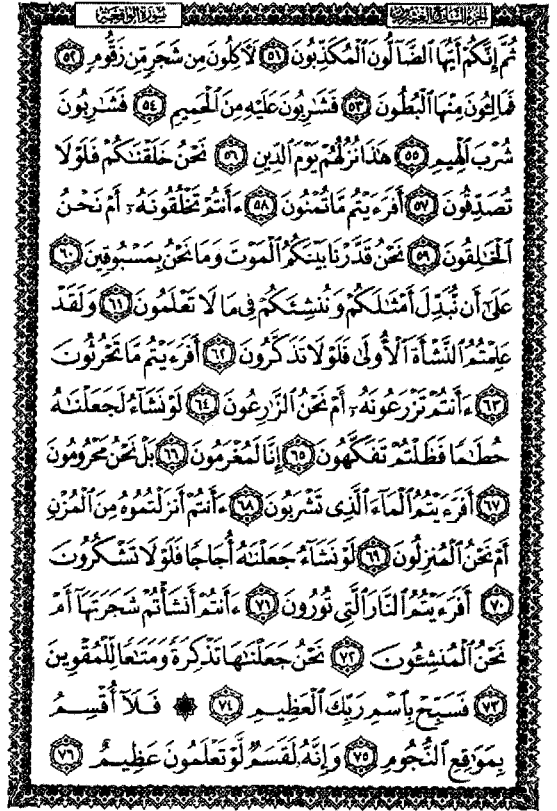 الجزء السابع والعشرون
سورة الواقعة
ثُمَّ إِنَّكُمْ أَيُّهَا الضَّالُّونَ الْمُكَذِّبُونَ ﴿٥١﴾ لَآكِلُونَ مِن شَجَرٍ مِّن زَقُّومٍ ﴿٥٢﴾
فَمَالِئُونَ مِنْهَا الْبُطُونَ ﴿٥٣﴾ فَشَارِبُونَ عَلَيْهِ مِنَ الْحَمِيمِ ﴿٥٤﴾ فَشَارِبُونَ
شُرْبَ الْهِيمِ ﴿٥٥﴾ هَٰذَا نُزُلُهُمْ يَوْمَ الدِّينِ ﴿٥٦﴾ نَحْنُ خَلَقْنَاكُمْ فَلَوْلَا
تُصَدِّقُونَ ﴿٥٧﴾ أَفَرَءَيْتُم مَّا تُمْنُونَ ﴿٥٨﴾ ءَأَنتُمْ تَخْلُقُونَهُۥ أَمْ نَحْنُ
الْخَالِقُونَ ﴿٥٩﴾ نَحْنُ قَدَّرْنَا بَيْنَكُمُ الْمَوْتَ وَمَا نَحْنُ بِمَسْبُوقِينَ ﴿٦٠﴾
عَلَىٰ أَن نُّبَدِّلَ أَمْثَالَكُمْ وَنُنشِئَكُمْ فِي مَا لَا تَعْلَمُونَ ﴿٦١﴾ وَلَقَدْ
عَلِمْتُمُ النَّشْأَةَ الْأُولَىٰ فَلَوْلَا تَذَكَّرُونَ ﴿٦٢﴾ أَفَرَءَيْتُم مَّا تَحْرُثُونَ
﴿٦٣﴾ ءَأَنتُمْ تَزْرَعُونَهُۥ أَمْ نَحْنُ الزَّارِعُونَ ﴿٦٤﴾ لَوْ نَشَاءُ لَجَعَلْنَاهُ
حُطَامًا فَظَلْتُمْ تَفَكَّهُونَ ﴿٦٥﴾ إِنَّا لَمُغْرَمُونَ ﴿٦٦﴾ بَلْ نَحْنُ مَحْرُومُونَ
﴿٦٧﴾ أَفَرَءَيْتُمُ الْمَاءَ الَّذِي تَشْرَبُونَ ﴿٦٨﴾ ءَأَنتُمْ أَنزَلْتُمُوهُ مِنَ الْمُزْنِ
أَمْ نَحْنُ الْمُنزِلُونَ ﴿٦٩﴾ لَوْ نَشَاءُ جَعَلْنَاهُ أُجَاجًا فَلَوْلَا تَشْكُرُونَ
﴿٧٠﴾ أَفَرَءَيْتُمُ النَّارَ الَّتِي تُورُونَ ﴿٧١﴾ ءَأَنتُمْ أَنشَأْتُمْ شَجَرَتَهَا أَمْ
نَحْنُ الْمُنشِئُونَ ﴿٧٢﴾ نَحْنُ جَعَلْنَاهَا تَذْكِرَةً وَمَتَاعًا لِّلْمُقْوِينَ
﴿٧٣﴾ فَسَبِّحْ بِاسْمِ رَبِّكَ الْعَظِيمِ ﴿٧٤﴾ ۞ فَلَا أُقْسِمُ
بِمَوَاقِعِ النُّجُومِ ﴿٧٥﴾ وَإِنَّهُۥ لَقَسَمٌ لَّوْ تَعْلَمُونَ عَظِيمٌ ﴿٧٦﴾